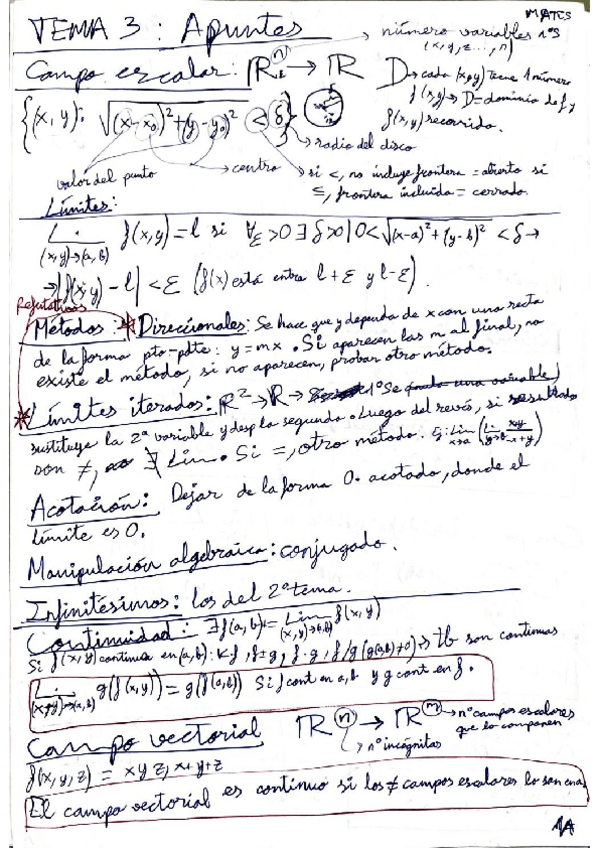 MATES
TEMA 3: Apuntes
número variables nºs
(x, y, z..., n)
Campo escalar: ℝⁿ → ℝ
D→ cada (x,y) tiene 1 número
f(x,y) → D = dominio de f y
f(x,y) recorrido.
{(x,y): √((x-x₀)²+(y-y₀)²) < δ}
radio del disco
centro
valor del punto
si <, no incluye frontera = abierto si
≤, frontera incluida = cerrado.
Límites:
Lim (x,y)→(a,b) f(x,y) = l si ∀ε>0 ∃ δ>0 | 0<√((x-a)²+(y-b)²) < δ →
→ |f(x,y) - l| < ε (f(x) está entre l+ε y l-ε).
Métodos: * Direccionales: Se hace que y dependa de x con una recta
de la forma pto-pdte: y=mx. Si aparecen las m al final, no
existe el método, si no aparecen, probar otro método.
* Límites iterados: ℝ² → ℝ → 1º Se
sustituye la 2ª variable y desp la segunda. Luego del revés, si resultado
son ≠, ∄ Lim. Si =, otro método.
Acotación: Dejar de la forma 0· acotado, donde el
límite es 0.
Manipulación algebraica: conjugado.
Infinitésimos: los del 2º tema.
Continuidad: ∃f(a,b) = Lim (x,y)→(a,b) f(x,y)
Si f(x,y) continua en (a,b): k·f, f±g, f·g, f/g (g(a,b)≠0) → tb son continuas
Lim (x,y)→(a,b) g(f(x,y)) = g(f(a,b)) Si f cont en a,b y g cont en f.
Campo vectorial ℝⁿ → ℝᵐ → nº campos escalares
que lo componen
nº incógnitas
f(x,y,z) = xyz, x+y+z
El campo vectorial es continuo si los ≠ campos escalares lo son